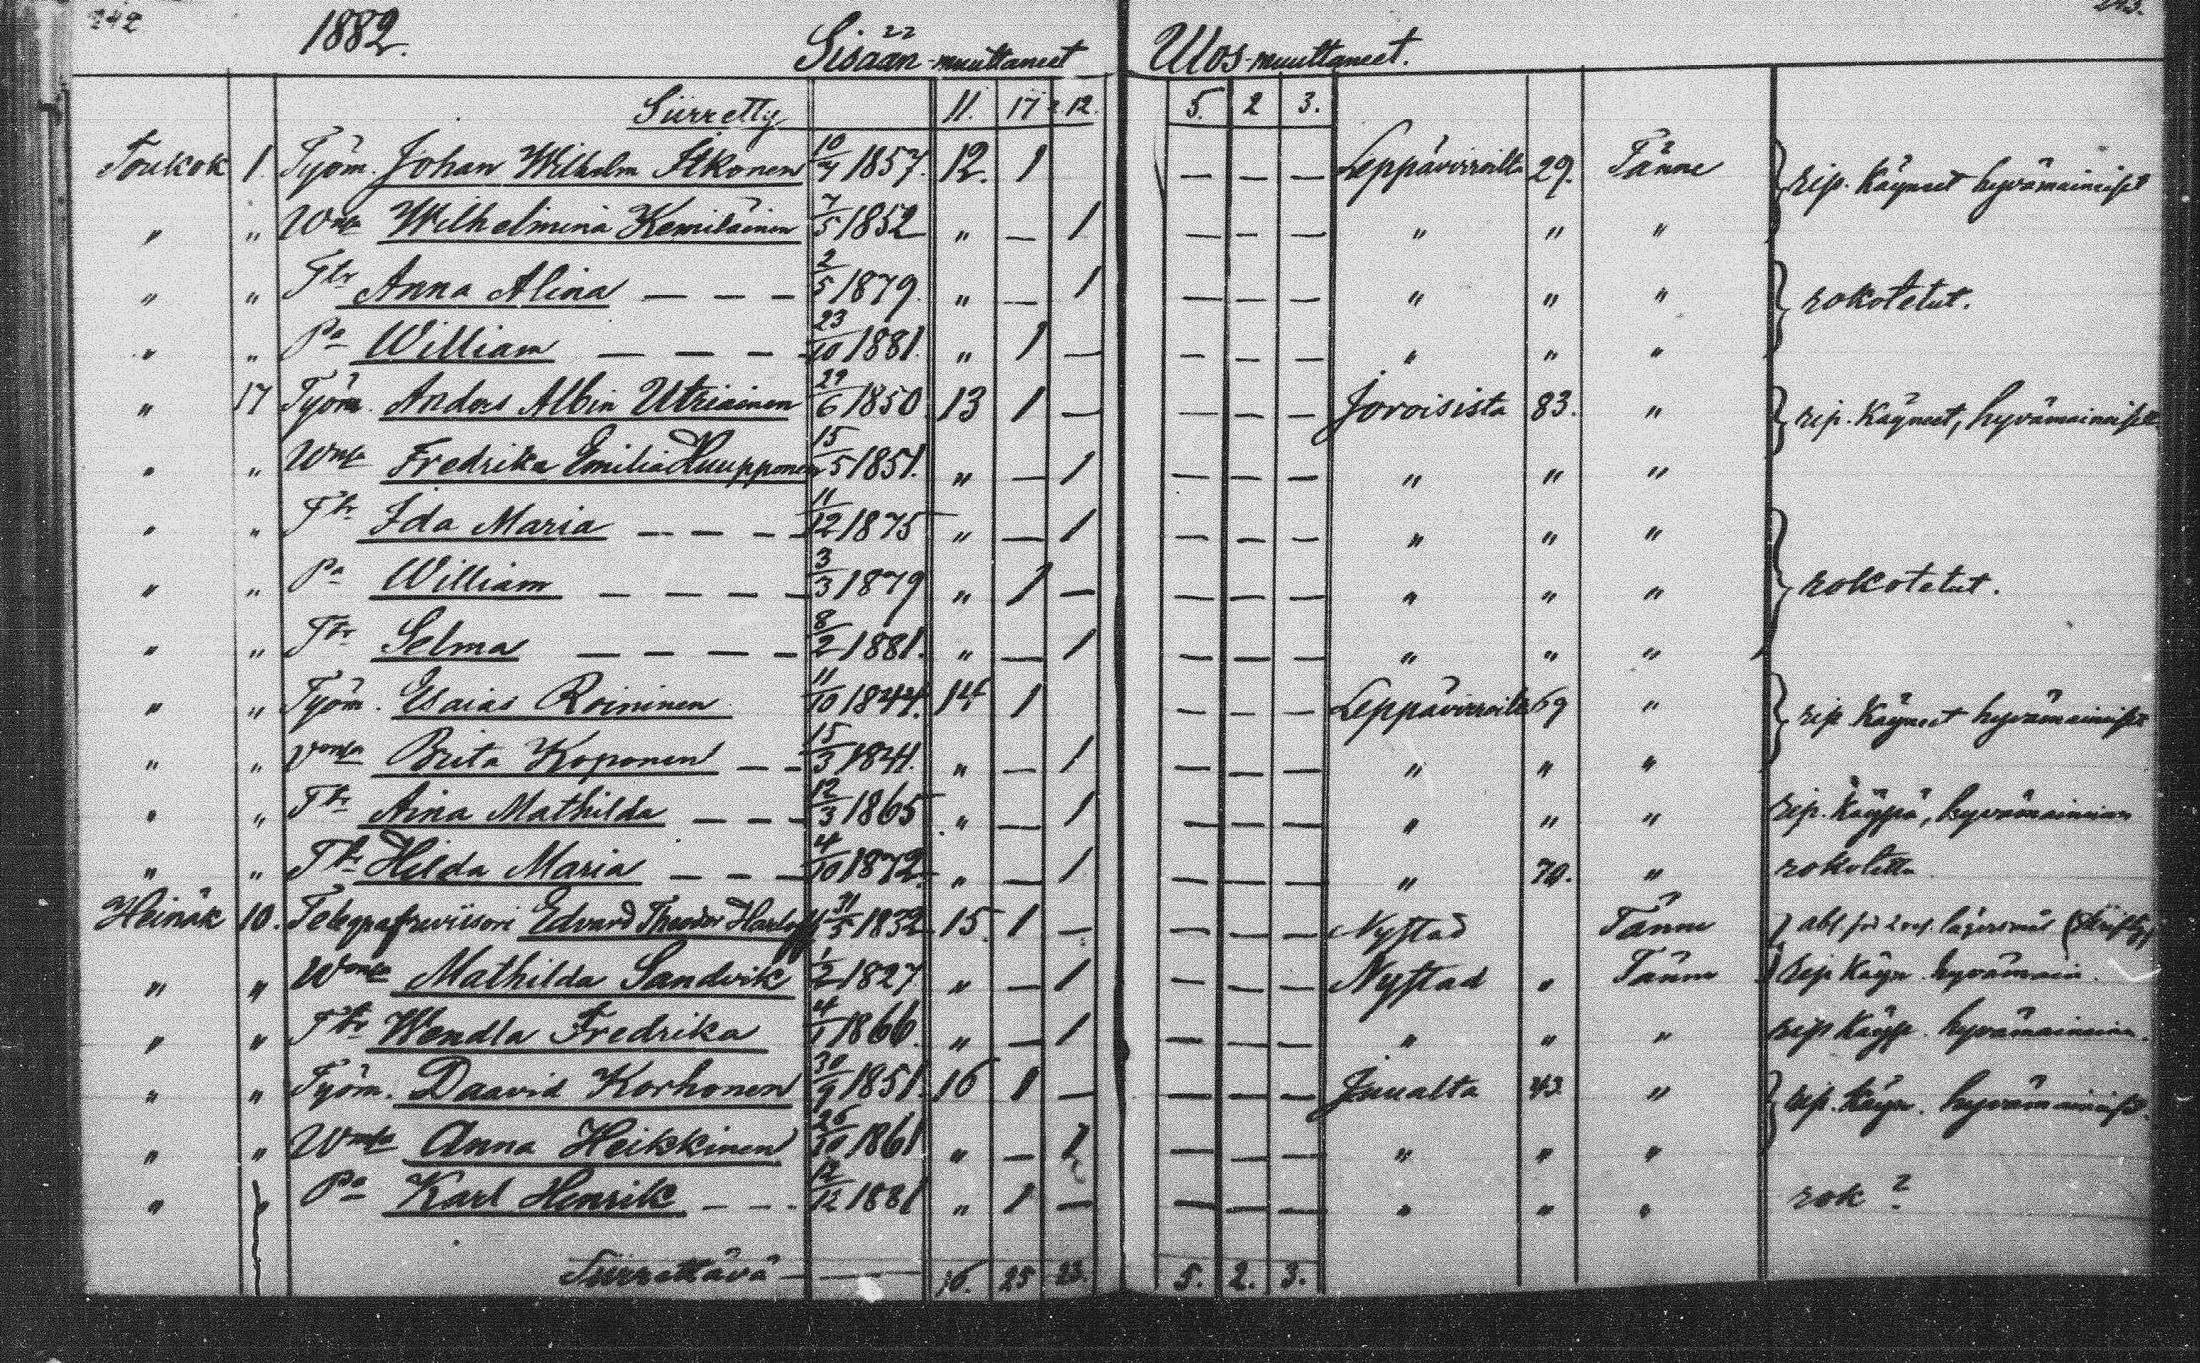 242 1882. Sisään-muuttaneet Ulos-muuttaneet. 243.
Siirretty 11. 17 12. 5. 2 3.
Toukok 1. Työm. Johan Wilhelm Itkonen 10/4 1857. 12. 1 — — — Leppävirroilta 29. Tänne } rip. käyneet hyvämainiset
" " Wmsa Wilhelmina Kemiläinen 7/5 1852 " — 1 — — — " " "
" " Ttr Anna Alina — — — 2/5 1879. " — 1 — — — " " " } rokotetut.
" " Pa William — — — — 23/10 1881. " 1 — — — — " " "
" 17 Työm. Anders Albin Utriainen 29/6 1850 13 1 — — — — Joroisista 83. " } rip. käyneet, hyvämainiset
" " Wmsa Fredrika Emilia Huupponen 15/5 1851. " — 1 — — — " " "
" " Ttr Ida Maria — — — — 11/12 1875 " — 1 — — — " " "
" " Pa William — — — — 3/3 1879 " 1 — — — — " " " } rokotetut.
" " Ttr Selma — — — — 8/2 1881. " — 1 — — — " " "
" " Työm. Esaias Roininen 11/10 1844. 14 1 — — — Leppävirroilta 69 " } rip. käyneet hyvämainiset
" " vmsa Brita Koponen — — 15/3 1841. " — 1 — — — " " "
" " Ttr Aina Mathilda — — — 12/3 1865 " — 1 — — — " " " rip. käypä, hyvämaininen
" " Ttr Hilda Maria — — — 4/10 1872. " — 1 — — — " 70. " rokotettu
Heinäk 10. Telegrafreviisori Edvard Theodor 31/5 1832 15 1 — — — — Nystad Tänne
" " Wmsa Mathilda Sandvik 1/2 1827 " — 1 — — — Nystad " Tänne rip käyn hyvämain.
" " Ttr Wendla Fredrika 4/1 1866. " — 1 — — — " " " rip käyp. hyvämainein.
" " Työm. Daavid Korhonen 30/9 1851. 16 1 — — — — Juualta 43 " } rip. käyn. hyvämainiset.
" " Wmsa Anna Heikkinen 26/10 1861 " — 1 — — — " " "
" " Pa Karl Henrik — — — 12/12 1881 " 1 — — — — " " " rok ?
Siirrettävä — — 16. 25 23. 5. 2. 3.